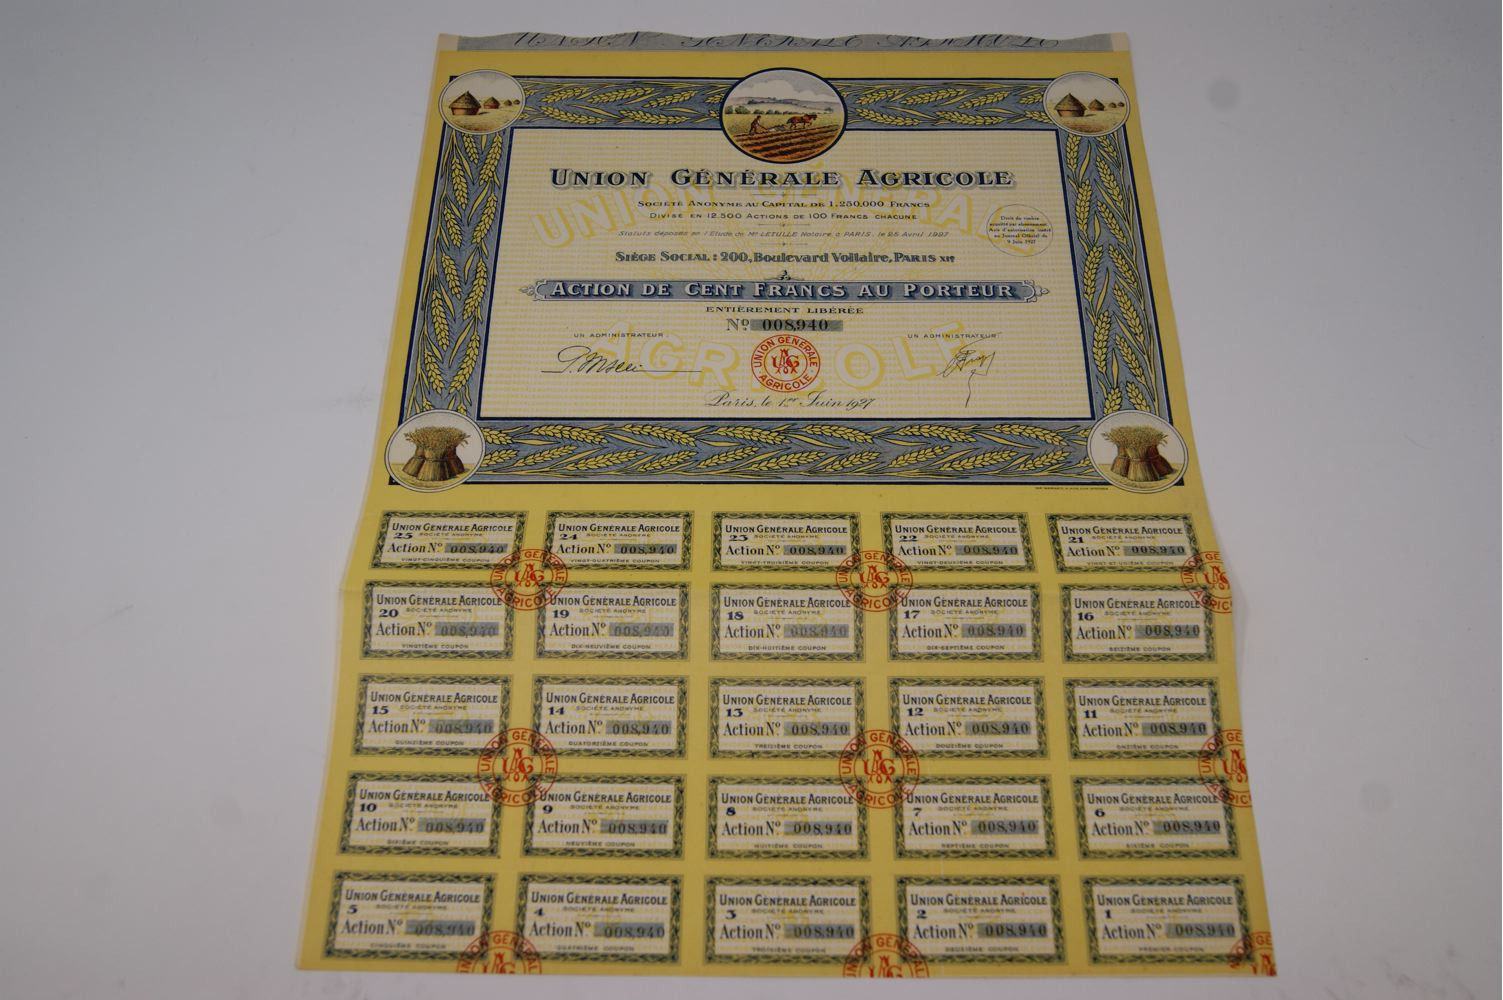 UNION GÉNÉRALE AGRICOLE
SOCIÉTÉ ANONYME AU CAPITAL DE 1.250.000 FRANCS
DIVISÉ EN 12.500 ACTIONS DE 100 FRANCS CHACUNE
Statuts déposés en l'Etude de Me LETULLE Notaire à PARIS, le 25 Avril 1927
Droit de timbre
acquitté par abonnement
Avis d'autorisation inséré
au Journal Officiel du
9 Juin 1927
SIÈGE SOCIAL : 200, Boulevard Voltaire, PARIS XIe
ACTION DE CENT FRANCS AU PORTEUR
ENTIÈREMENT LIBÉRÉE
No. 008,940
UN ADMINISTRATEUR. UN ADMINISTRATEUR.
UNION GÉNÉRALE AGRICOLE
UAG
Paris, le 1er Juin 1927
UNION GÉNÉRALE AGRICOLE
25 SOCIÉTÉ ANONYME
Action No. 008,940
VINGT-CINQUIÈME COUPON
UNION GÉNÉRALE AGRICOLE
24 SOCIÉTÉ ANONYME
Action No. 008,940
VINGT-QUATRIÈME COUPON
UNION GÉNÉRALE AGRICOLE
23 SOCIÉTÉ ANONYME
Action No. 008,940
VINGT-TROISIÈME COUPON
UNION GÉNÉRALE AGRICOLE
22 SOCIÉTÉ ANONYME
Action No. 008,940
VINGT-DEUXIÈME COUPON
UNION GÉNÉRALE AGRICOLE
21 SOCIÉTÉ ANONYME
Action No. 008,940
VINGT ET UNIÈME COUPON
UNION GÉNÉRALE AGRICOLE
20 SOCIÉTÉ ANONYME
Action No. 008,940
VINGTIÈME COUPON
UNION GÉNÉRALE AGRICOLE
19 SOCIÉTÉ ANONYME
Action No. 008,940
DIX-NEUVIÈME COUPON
UNION GÉNÉRALE AGRICOLE
18 SOCIÉTÉ ANONYME
Action No. 008,940
DIX-HUITIÈME COUPON
UNION GÉNÉRALE AGRICOLE
17 SOCIÉTÉ ANONYME
Action No. 008,940
DIX-SEPTIÈME COUPON
UNION GÉNÉRALE AGRICOLE
16 SOCIÉTÉ ANONYME
Action No. 008,940
SEIZIÈME COUPON
UNION GÉNÉRALE AGRICOLE
15 SOCIÉTÉ ANONYME
Action No. 008,940
QUINZIÈME COUPON
UNION GÉNÉRALE AGRICOLE
14 SOCIÉTÉ ANONYME
Action No. 008,940
QUATORZIÈME COUPON
UNION GÉNÉRALE AGRICOLE
13 SOCIÉTÉ ANONYME
Action No. 008,940
TREIZIÈME COUPON
UNION GÉNÉRALE AGRICOLE
12 SOCIÉTÉ ANONYME
Action No. 008,940
DOUZIÈME COUPON
UNION GÉNÉRALE AGRICOLE
11 SOCIÉTÉ ANONYME
Action No. 008,940
ONZIÈME COUPON
UNION GÉNÉRALE AGRICOLE
10 SOCIÉTÉ ANONYME
Action No. 008,940
DIXIÈME COUPON
UNION GÉNÉRALE AGRICOLE
9 SOCIÉTÉ ANONYME
Action No. 008,940
NEUVIÈME COUPON
UNION GÉNÉRALE AGRICOLE
8 SOCIÉTÉ ANONYME
Action No. 008,940
HUITIÈME COUPON
UNION GÉNÉRALE AGRICOLE
7 SOCIÉTÉ ANONYME
Action No. 008,940
SEPTIÈME COUPON
UNION GÉNÉRALE AGRICOLE
6 SOCIÉTÉ ANONYME
Action No. 008,940
SIXIÈME COUPON
UNION GÉNÉRALE AGRICOLE
5 SOCIÉTÉ ANONYME
Action No. 008,940
CINQUIÈME COUPON
UNION GÉNÉRALE AGRICOLE
4 SOCIÉTÉ ANONYME
Action No. 008,940
QUATRIÈME COUPON
UNION GÉNÉRALE AGRICOLE
3 SOCIÉTÉ ANONYME
Action No. 008,940
TROISIÈME COUPON
UNION GÉNÉRALE AGRICOLE
2 SOCIÉTÉ ANONYME
Action No. 008,940
DEUXIÈME COUPON
UNION GÉNÉRALE AGRICOLE
1 SOCIÉTÉ ANONYME
Action No. 008,940
PREMIER COUPON